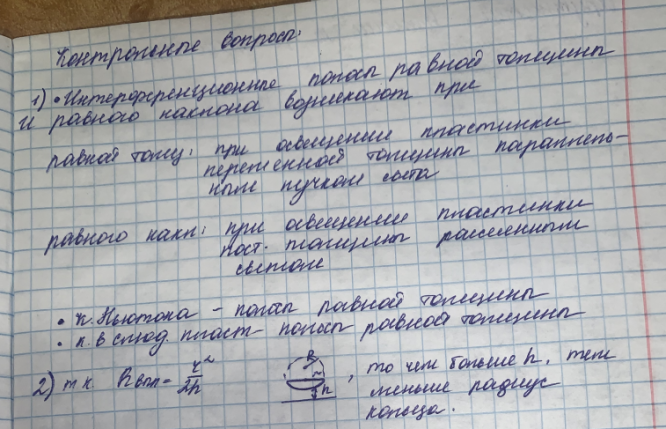 Контрольные вопросы:
1) • Интерференционные полосы равной толщины
и равного наклона возникают при
равной толщ: при освещении пластинки
переменной толщины параллель-
ным пучком света
равного накл: при освещении пластинки
пост. толщины рассеянным
светом
• к. Ньютона - полосы равной толщины
• к. в слюд. пласт - полосы равной толщины
2) т.к. R = r²/2h R h, то чем больше h, тем
меньше радиус
кольца.